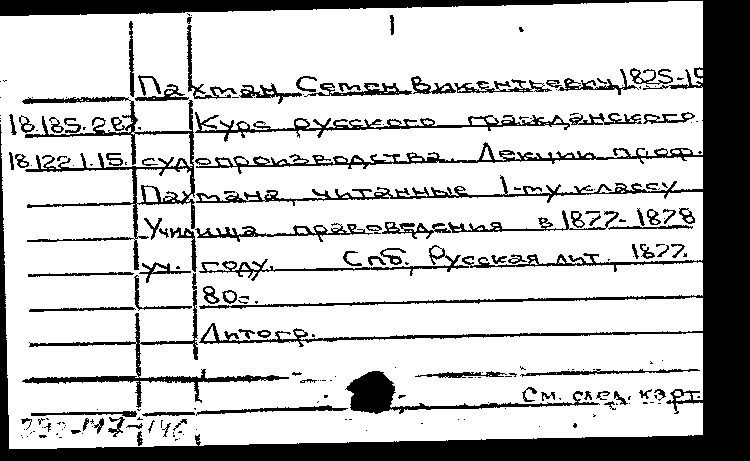 Пахман, Семен Викентьевич, 1825-19
18.185.2.87. Курс русского гражданского
18.122.1.15. судопроизводства. Лекции проф.
Пахмана, читанные 1-му классу
Училища правоведения в 1877-1878
уч. году. Спб., Русская лит., 1877.
80с.
Литогр.
См. след. карт.
293-147-146